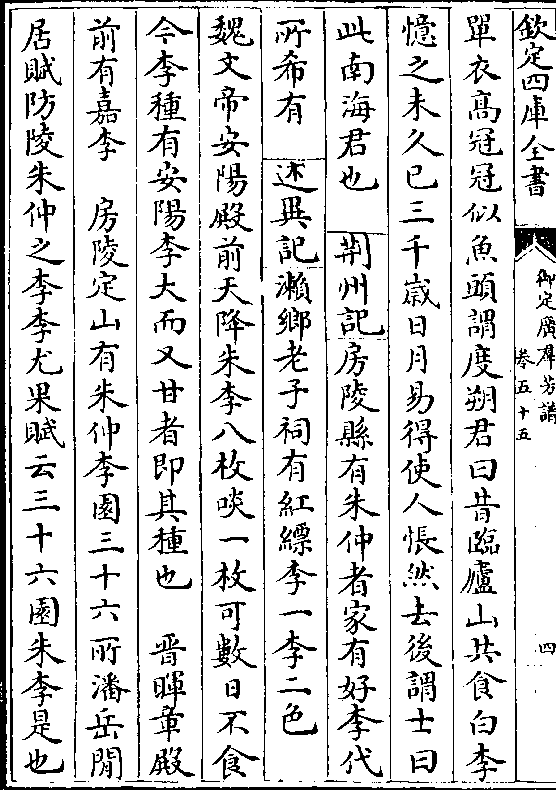 欽定四庫全書
御定廣羣芳譜
卷五十五
四
單衣高冠冠似魚頭謂度朔君曰昔臨廬山共食白李
憶之未久已三千歲日月易得使人悵然去後謂士曰
此南海君也　荆州記房陵縣有朱仲者家有好李代
所希有　述異記瀨鄉老子祠有紅縹李一李二色
魏文帝安陽殿前天降朱李八枚啖一枚可數日不食
今李種有安陽李大而又甘者即其種也　晉暉章殿
前有嘉李　房陵定山有朱仲李園三十六所潘岳閒
居賦防陵朱仲之李李尤果賦云三十六園朱李是也